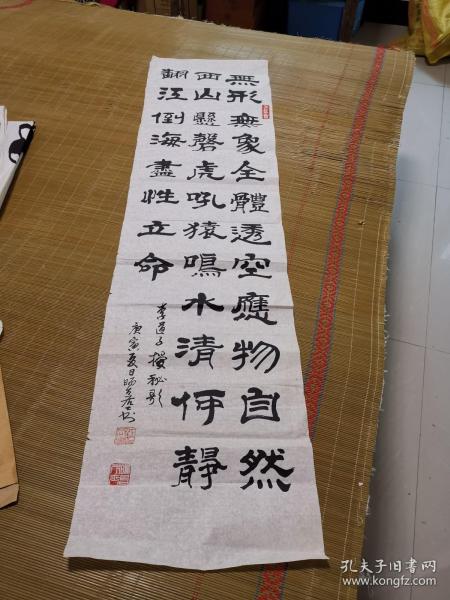 無形無象全體透空應物自然
西山懸磬虎吼猿鳴水清何靜
翻江倒海盡性立命
李道子授秘歌
庚寅夏日
孔夫子旧书网
www.kongfz.com